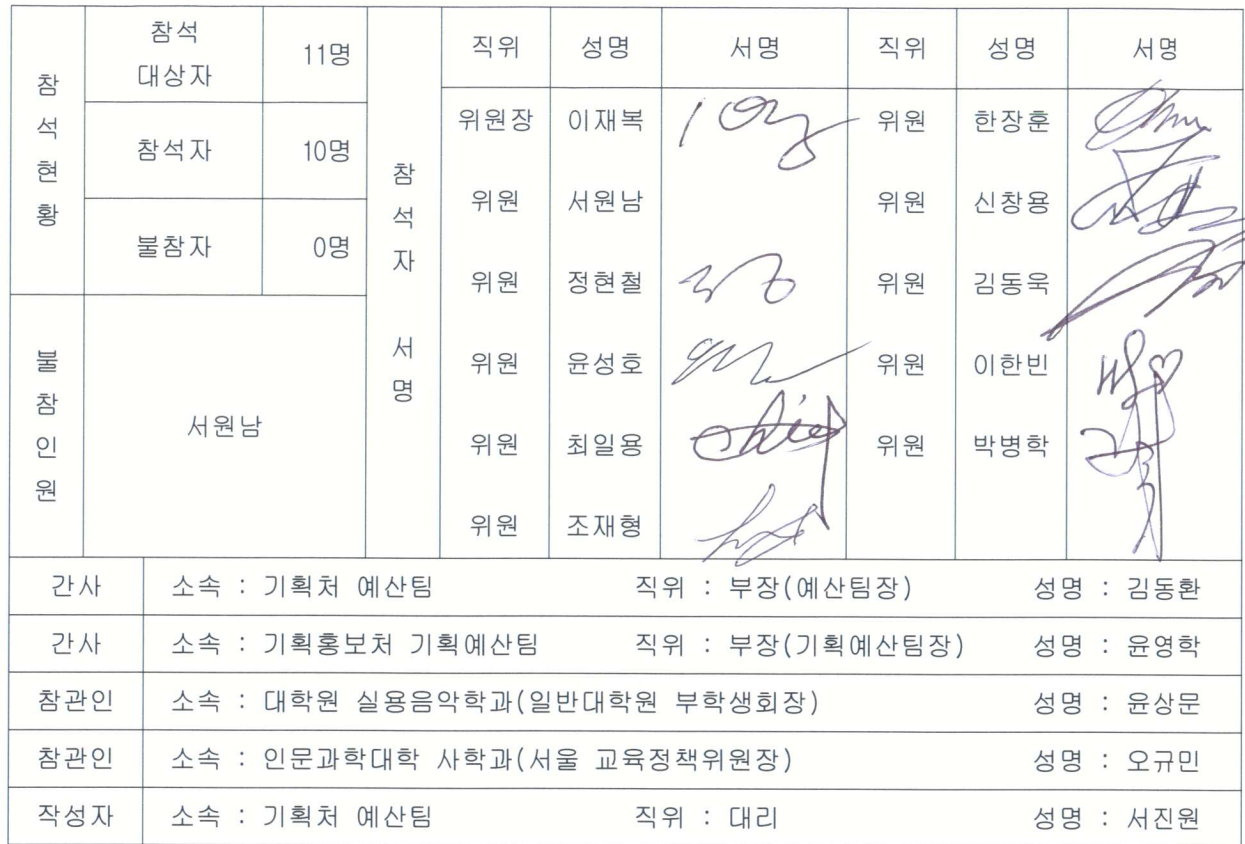 참석현황
참석 대상자 11명
참석자 10명
불참자 0명
불참인원
서원남
참석자 서명
직위 성명 서명 직위 성명 서명
위원장 이재복 위원 한장훈
위원 서원남 위원 신창용
위원 정현철 위원 김동욱
위원 윤성호 위원 이한빈
위원 최일용 위원 박병학
위원 조재형
간사 소속 : 기획처 예산팀 직위 : 부장(예산팀장) 성명 : 김동환
간사 소속 : 기획홍보처 기획예산팀 직위 : 부장(기획예산팀장) 성명 : 윤영학
참관인 소속 : 대학원 실용음악학과(일반대학원 부학생회장) 성명 : 윤상문
참관인 소속 : 인문과학대학 사학과(서울 교육정책위원장) 성명 : 오규민
작성자 소속 : 기획처 예산팀 직위 : 대리 성명 : 서진원